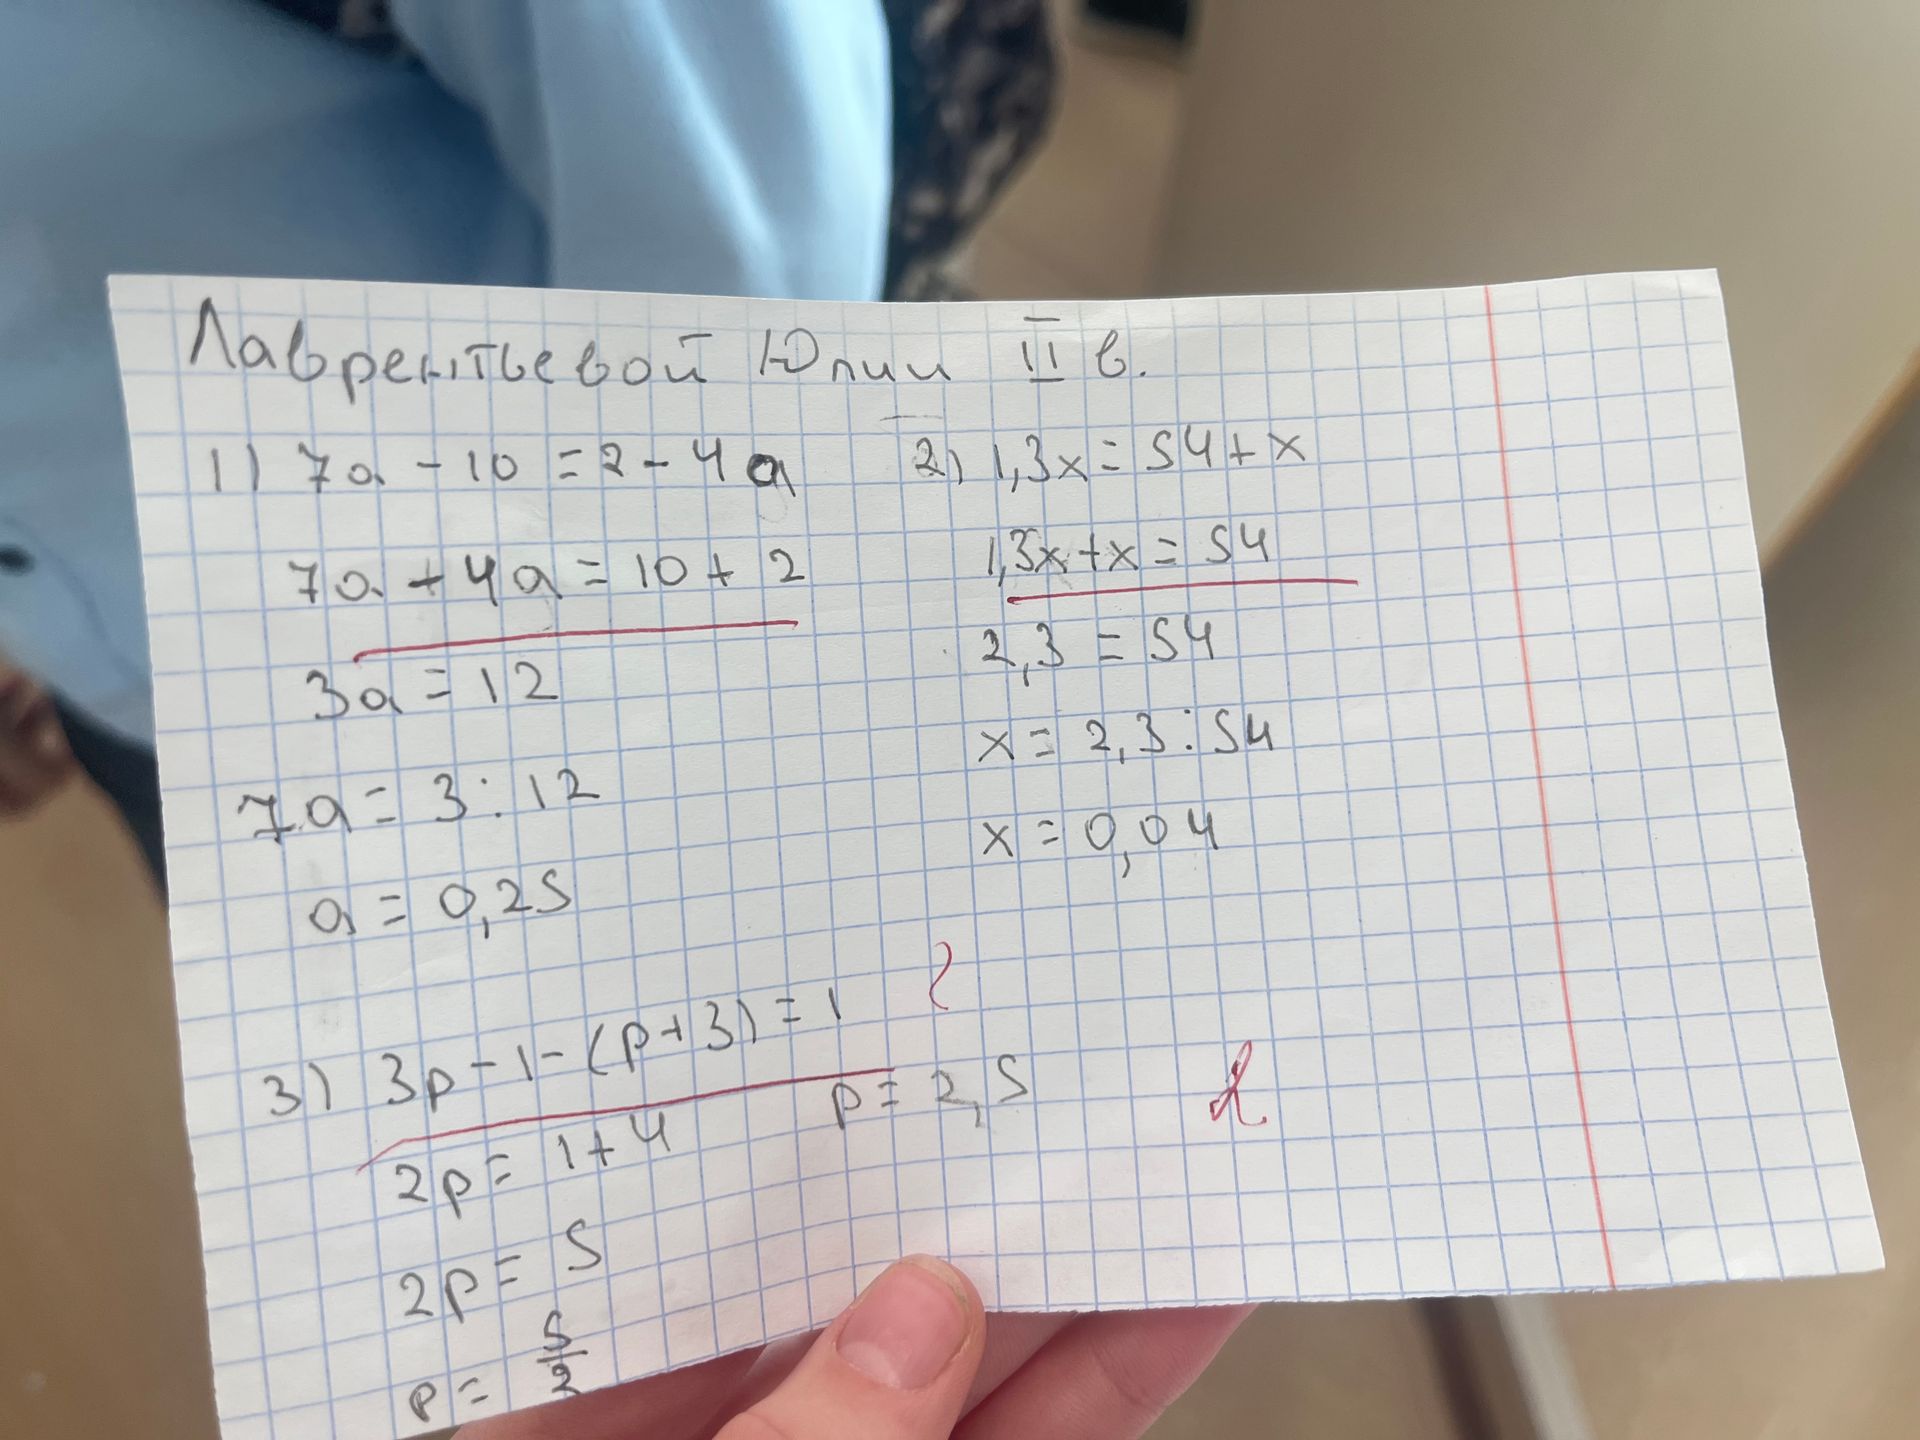 Лаврентьевой Юлии II в.
1) 7a - 10 = 2 - 4a
7a + 4a = 10 + 2
3a = 12
7a = 3 : 12
a = 0,25
2) 1,3x = 54 + x
1,3x + x = 54
2,3 = 54
x = 2,3 : 54
x = 0,04
3) 3p - 1 - (p + 3) = 1
2p = 1 + 4
2p = 5
p = 5/2
p = 2,5